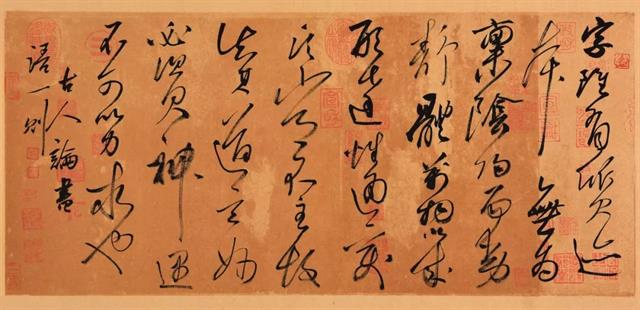 字雖有質迹
本無為
稟陰陽而動
靜體萬物以成
形達性通變
其常不主故
知書道玄妙
必資神遇
不可以力求也
古人論書
語一則